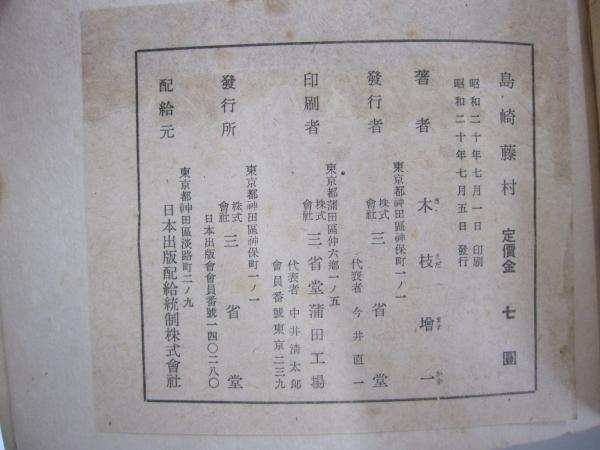 島崎藤村 定價金 七圓
昭和二十年七月一日 印刷
昭和二十年七月五日 發行
著者 木枝增一
き えだ ます かず
東京都神田區神保町一ノ一
發行者 株式會社 三省堂
代表者 今井直一
東京都蒲田區仲六鄕一ノ五
印刷者 株式會社 三省堂蒲田工場
代表者 中井淸太郎
會員番號東京二三九
東京都神田區神保町一ノ一
發行所 株式會社 三省堂
日本出版會會員番號一四〇二八〇
東京都神田區淡路町二ノ九
配給元 日本出版配給統制株式會社